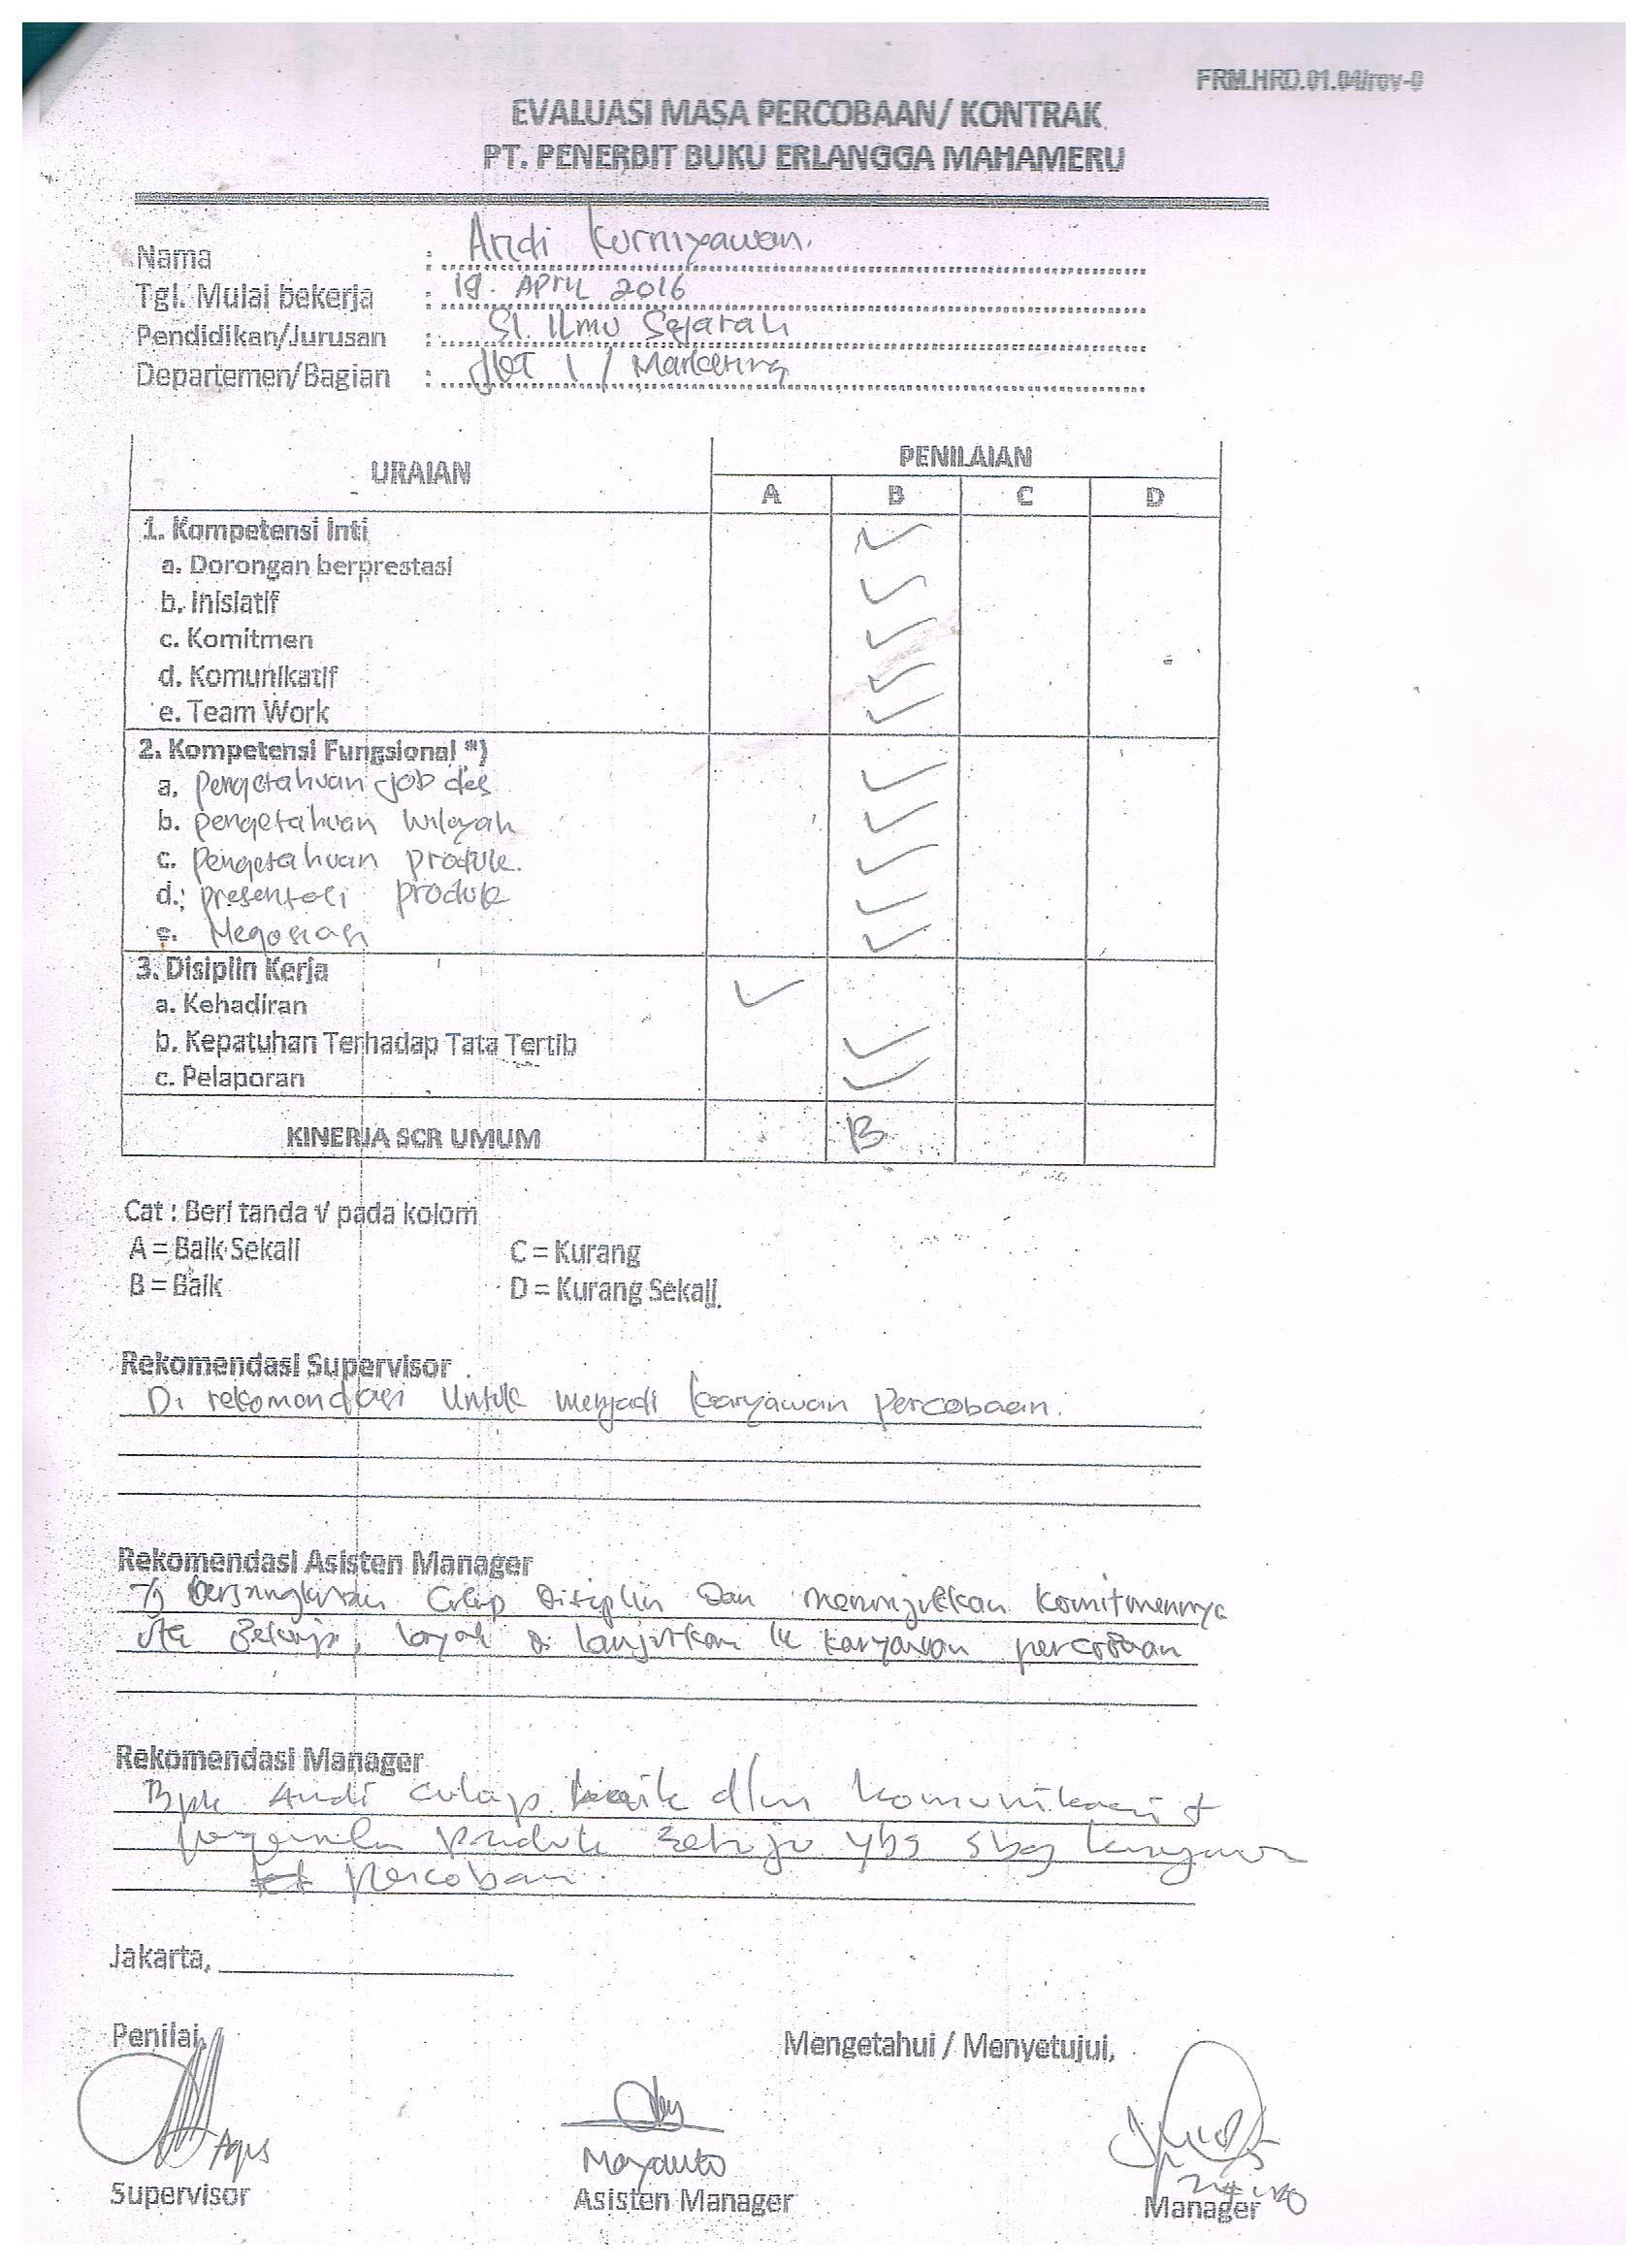 FRM.HRD.01.04/rev-0
EVALUASI MASA PERCOBAAN/ KONTRAK
PT. PENERBIT BUKU ERLANGGA MAHAMERU
Nama : Andi Kurniyawan.
Tgl. Mulai bekerja : 19. APRIL 2016
Pendidikan/Jurusan : S1. Ilmu Sejarah
Departemen/Bagian : JKT 1 / Marketing
URAIAN PENILAIAN
A B C D
1. Kompetensi Inti ✓
a. Dorongan berprestasi
b. Inisiatif ✓
c. Komitmen ✓
d. Komunikatif ✓
e. Team Work ✓
2. Kompetensi Fungsional *)
a. Pengetahuan job des ✓
b. pengetahuan wilayah ✓
c. Pengetahuan produk. ✓
d. presentasi produk ✓
e. Negosiasi ✓
3. Disiplin Kerja
a. Kehadiran ✓
b. Kepatuhan Terhadap Tata Tertib ✓
c. Pelaporan ✓
KINERJA SCR UMUM B
Cat : Beri tanda √ pada kolom
A = Baik Sekali C = Kurang
B = Baik D = Kurang Sekali
Rekomendasi Supervisor
Di rekomondasi Untuk menjadi karyawan Percobaan.
Rekomendasi Asisten Manager
bersangkutan Cukup Disiplin Dan menunjukkan komitmennya
Bekerja, layak di lanjutkan ke karyawan percobaan
Rekomendasi Manager
Bpk Andi cukup baik dlm komunikasi +
produk setuju ybs sbg karyawan
percobaan.
Jakarta,
Penilai, Mengetahui / Menyetujui,
Agus
Maryanto
Supervisor Asisten Manager Manager